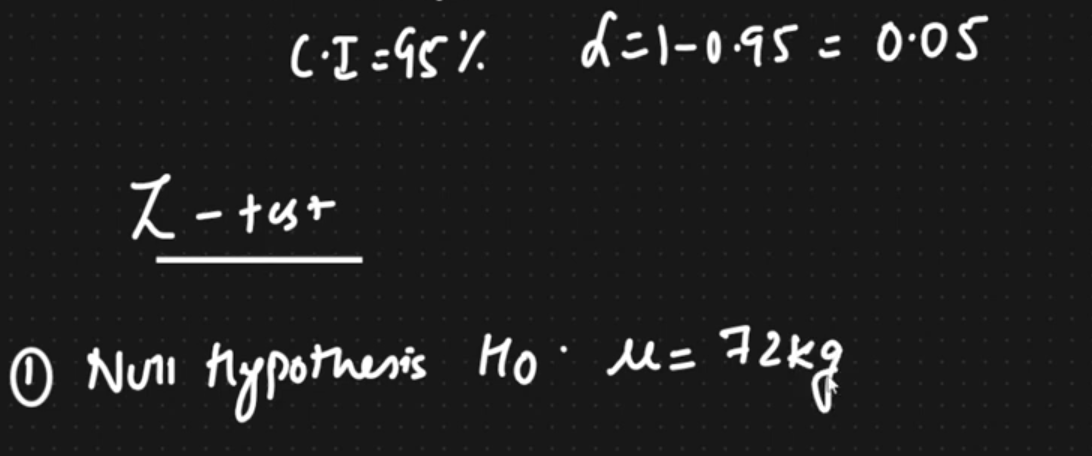 C.I = 95% α = 1 - 0.95 = 0.05
Z - test
① Null Hypothesis H0 : μ = 72kg